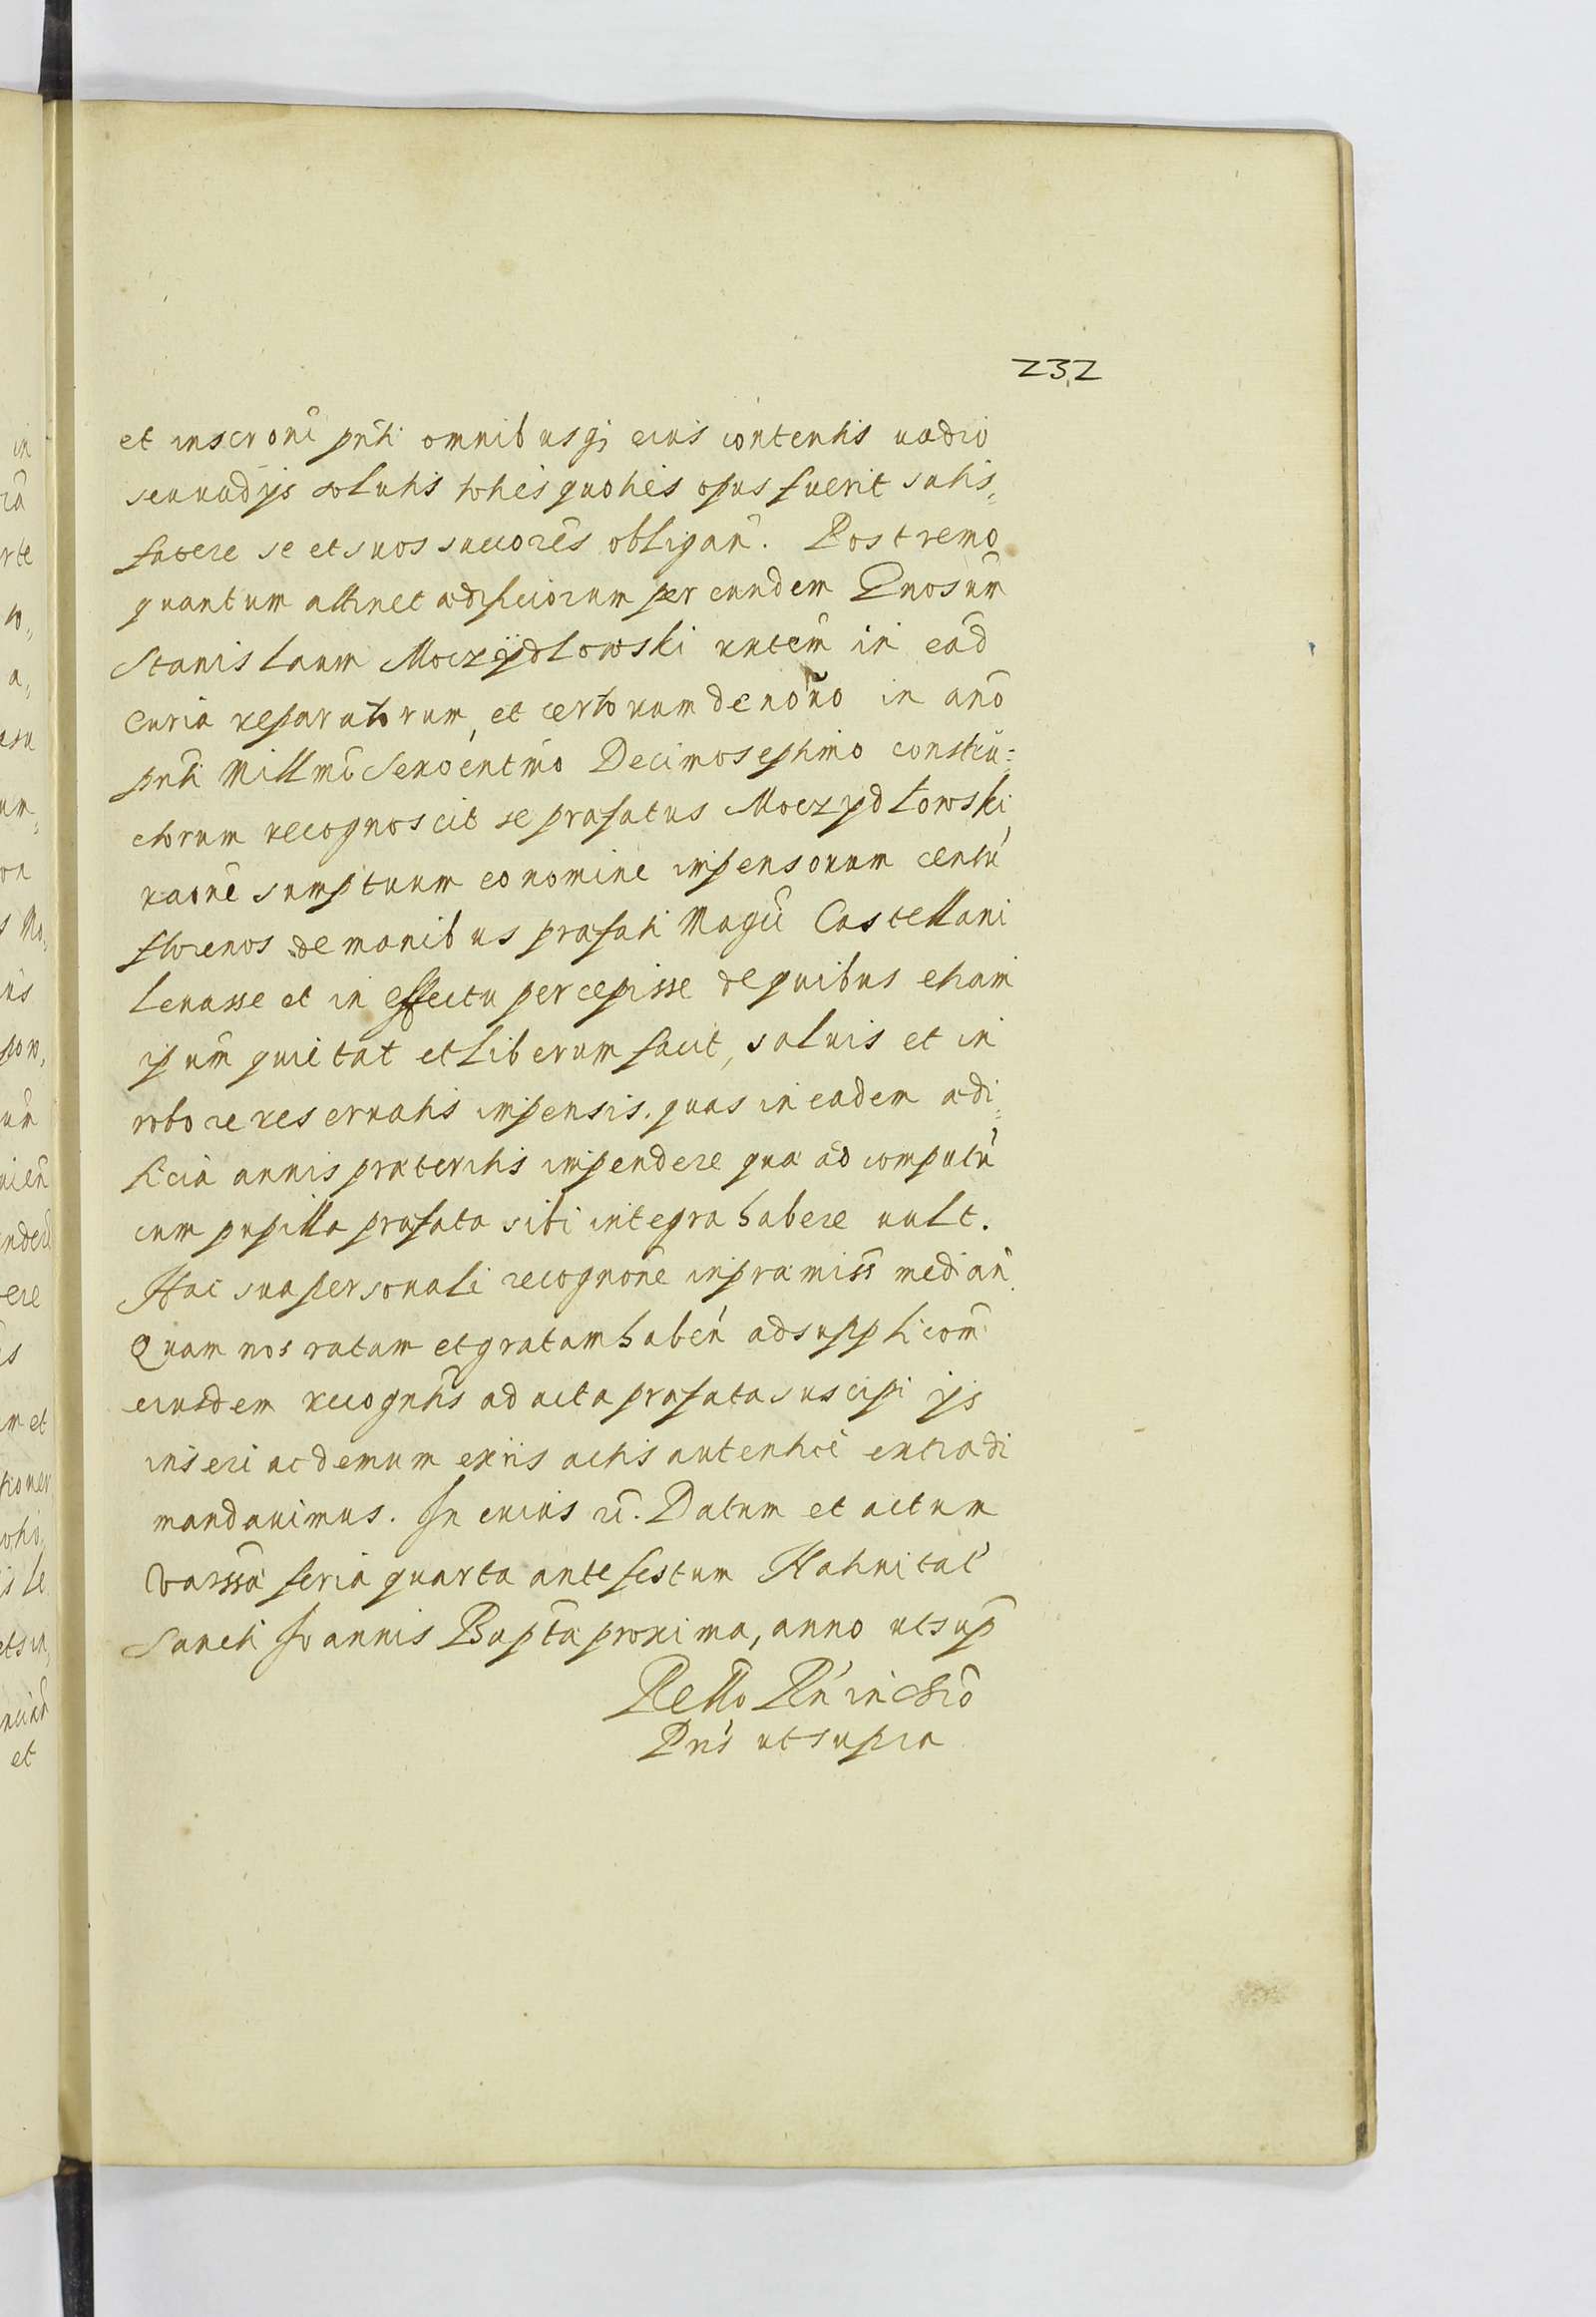 232
et inscroni pnti omnibusq; eius contentis uadio
seu uadijs solutis toties quoties opus fuerit satis,,
facere se et suos succores obligan̄. Postremo
quantum attinet ædificiorum per eundem Gnosum
Stanislaum Moczydłowski utem in ead̄
Curia reparatorum, et certorum de nouo in ano
pnti Millmo Sexcentmo Decimoseptimo constru=
ctorum recognoscit se præfatus Moczydłowski
raone sumptuum eo nomine impensorum centū
florenos de manibus præfati Magci Castellani
leuasse et in effectu percepisse de quibus etiam
ipsum quietat et liberum facit, saluis et in
robore reseruatis impensis. quas in eadem ædi,,
ficia annis præteritis impendere quæ ad computū
cum pupilla præfata sibi integra habere uult.
Hac sua personali recognone in præmiss median̄
Quam nos ratam et gratam haben̄ ad supplicom̄
eiusdem recogntis ad acta præfata suscipi ijs
inseri ac demum ex iis actis autentice extradi
mandauimus. In cuius rei. Datum et actum
Varssa feria quarta ante festum Natiuitat
Sancti Joannis Bapta proxima, anno ut sup̄
Pns ut supra